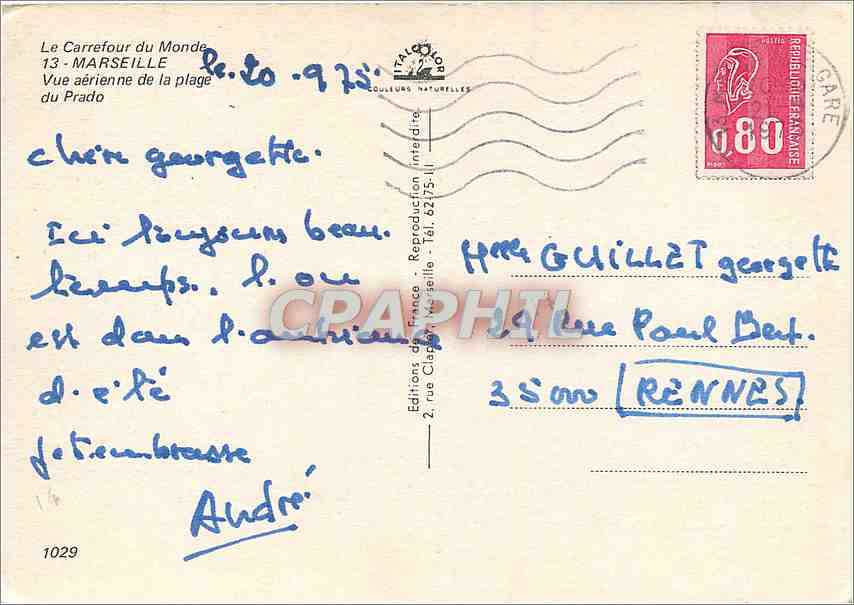 Le Carrefour du Monde
13 - MARSEILLE
Vue aérienne de la plage
du Prado
le 20 . 9 75.
ITALCOLOR
COULEURS NATURELLES
chère georgette.
Ici toujours beau.
temps. l. on
est dans l'ambiance
d. été
je t embrasse
André
1029
Editions de France - Reproduction interdite
2, rue Clapier, Marseille - Tél. 62-75-11
POSTES
REPUBLIQUE FRANÇAISE
0,80
GARE
Melle GUILLET georgette
29 Rue Paul Bert.
35000 RENNES
CRAPHIL